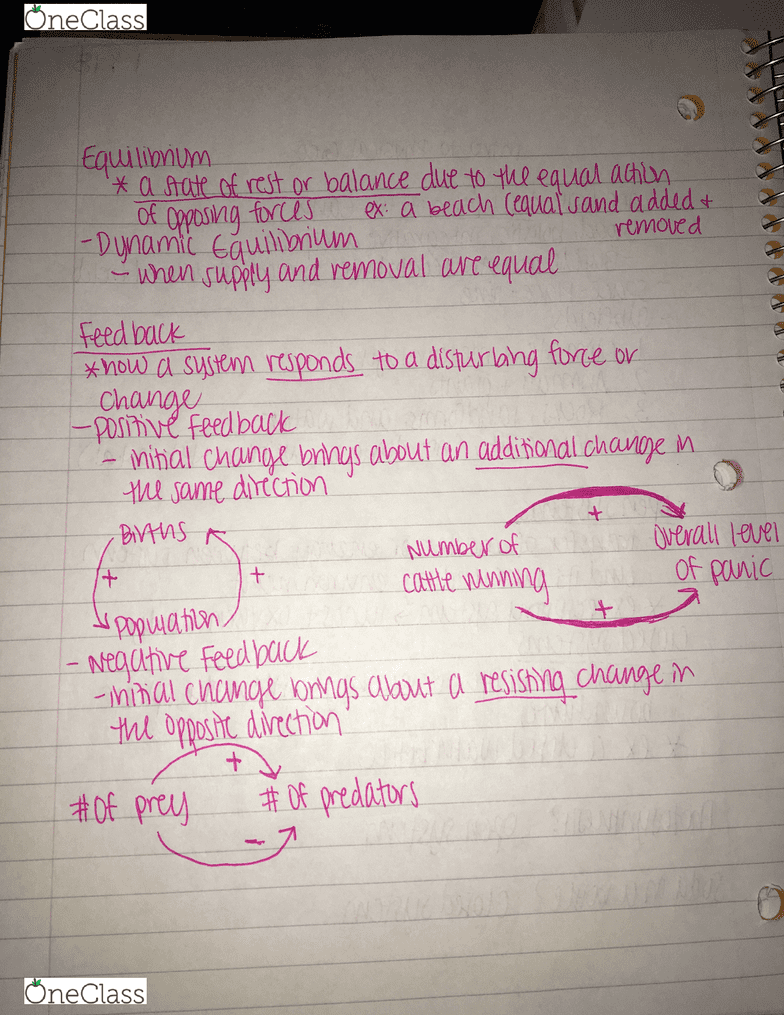 OneClass
Equilibrium
* a state of rest or balance due to the equal action
of opposing forces ex: a beach (equal sand added +
removed
- Dynamic Equilibrium
- when supply and removal are equal
Feedback
* how a system responds to a disturbing force or
change
- positive feedback
- initial change brings about an additional change in
the same direction
Births
+ +
population
Number of
cattle running
+
overall level
of panic
+
- Negative Feedback
- initial change brings about a resisting change in
the opposite direction
+
# of prey # of predators
-
OneClass